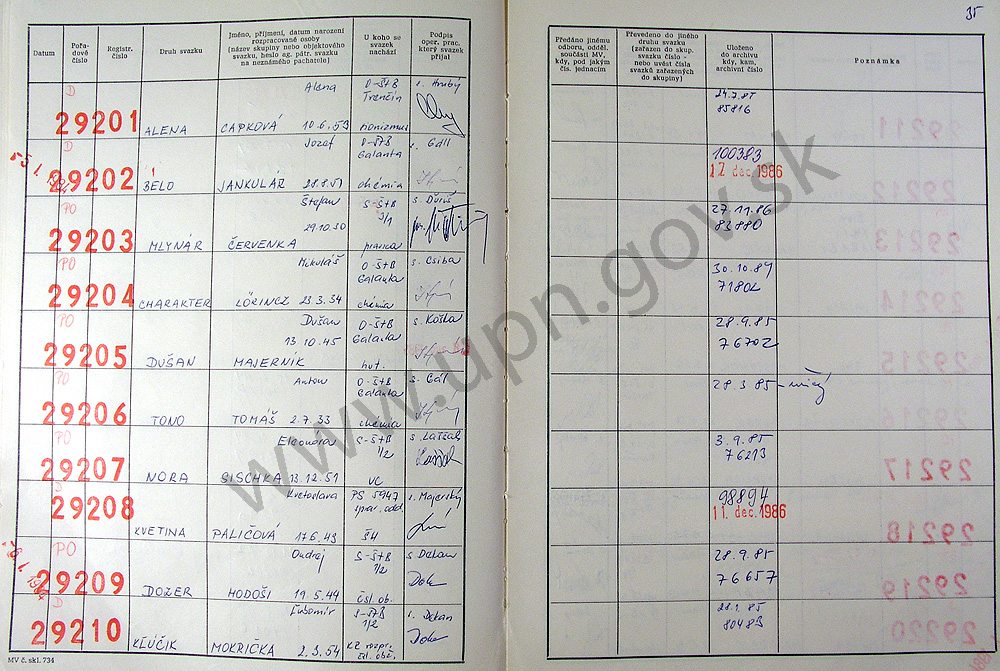 35
Datum
Pořa-
dové
číslo
Registr.
číslo
Druh svazku
Jméno, příjmení, datum narození
rozpracované osoby
(název skupiny nebo objektového
svazku, heslo ag. pátr. svazku
na neznámého pachatele)
U koho se
svazek
nachází
Podpis
oper. prac.
který svazek
přijal
Předáno jinému
odboru, odděl.
součásti MV,
kdy, pod jakým
čís. jednacím
Převedeno do jiného
druhu svazku
(zařazen do skup.
svazku číslo -
nebo uvést čísla
svazků zařazených
do skupiny)
Uloženo
do archivu
kdy, kam,
archivní číslo
Poznámka
D
29201
ALENA
Alena
CAPKOVÁ 10.6.53
O-ŠtB
Trenčín
s. Hrubý
24.7.85
85816
D
29202
BÉLO
Jozef
JANKULÁR 28.8.51
O-ŠtB
Galanta
chémia
100383
12 dec. 1986
PO
29203
MLYNÁR
Štefan
29.10.30
ČERVENKA
S-ŠtB
3/1
pravica
27.11.86
83880
PO
29204
CHARAKTER
Mikuláš
LÖRINCZ 23.3.34
O-ŠtB
Galanta
chémia
s. Csiba
30.10.84
71802
PO
29205
DUŠAN
Dušan
13.10.45
MAJERNÍK
O-ŠtB
Galanta
hut.
s. Koška
28.9.85
76702
PO
29206
TONO
Anton
TOMÁŠ 2.7.33
O-ŠtB
Galanta
chémia
s. Gál
28.3.85
PO
29207
NORA
Eleonora
SISCHKA 13.12.51
S-ŠtB
1/2
VC
3.9.85
76213
D
29208
KVETINA
Kvetoslava
PALIČOVÁ 17.6.43
PS 5947
ŠH
s. Majerský
98894
11. dec. 1986
PO
29209
DOZER
Ondrej
HODOŠI 19.5.49
S-ŠtB
1/2
čsl. ob.
s. Dekan
28.9.85
76657
D
29210
KĽÚČIK
Ľubomír
MOKRIČKA 2.3.54
S-ŠtB
1/2
s. Dekan
28.1.85
80483
MV č. skl. 734
www.upn.gov.sk